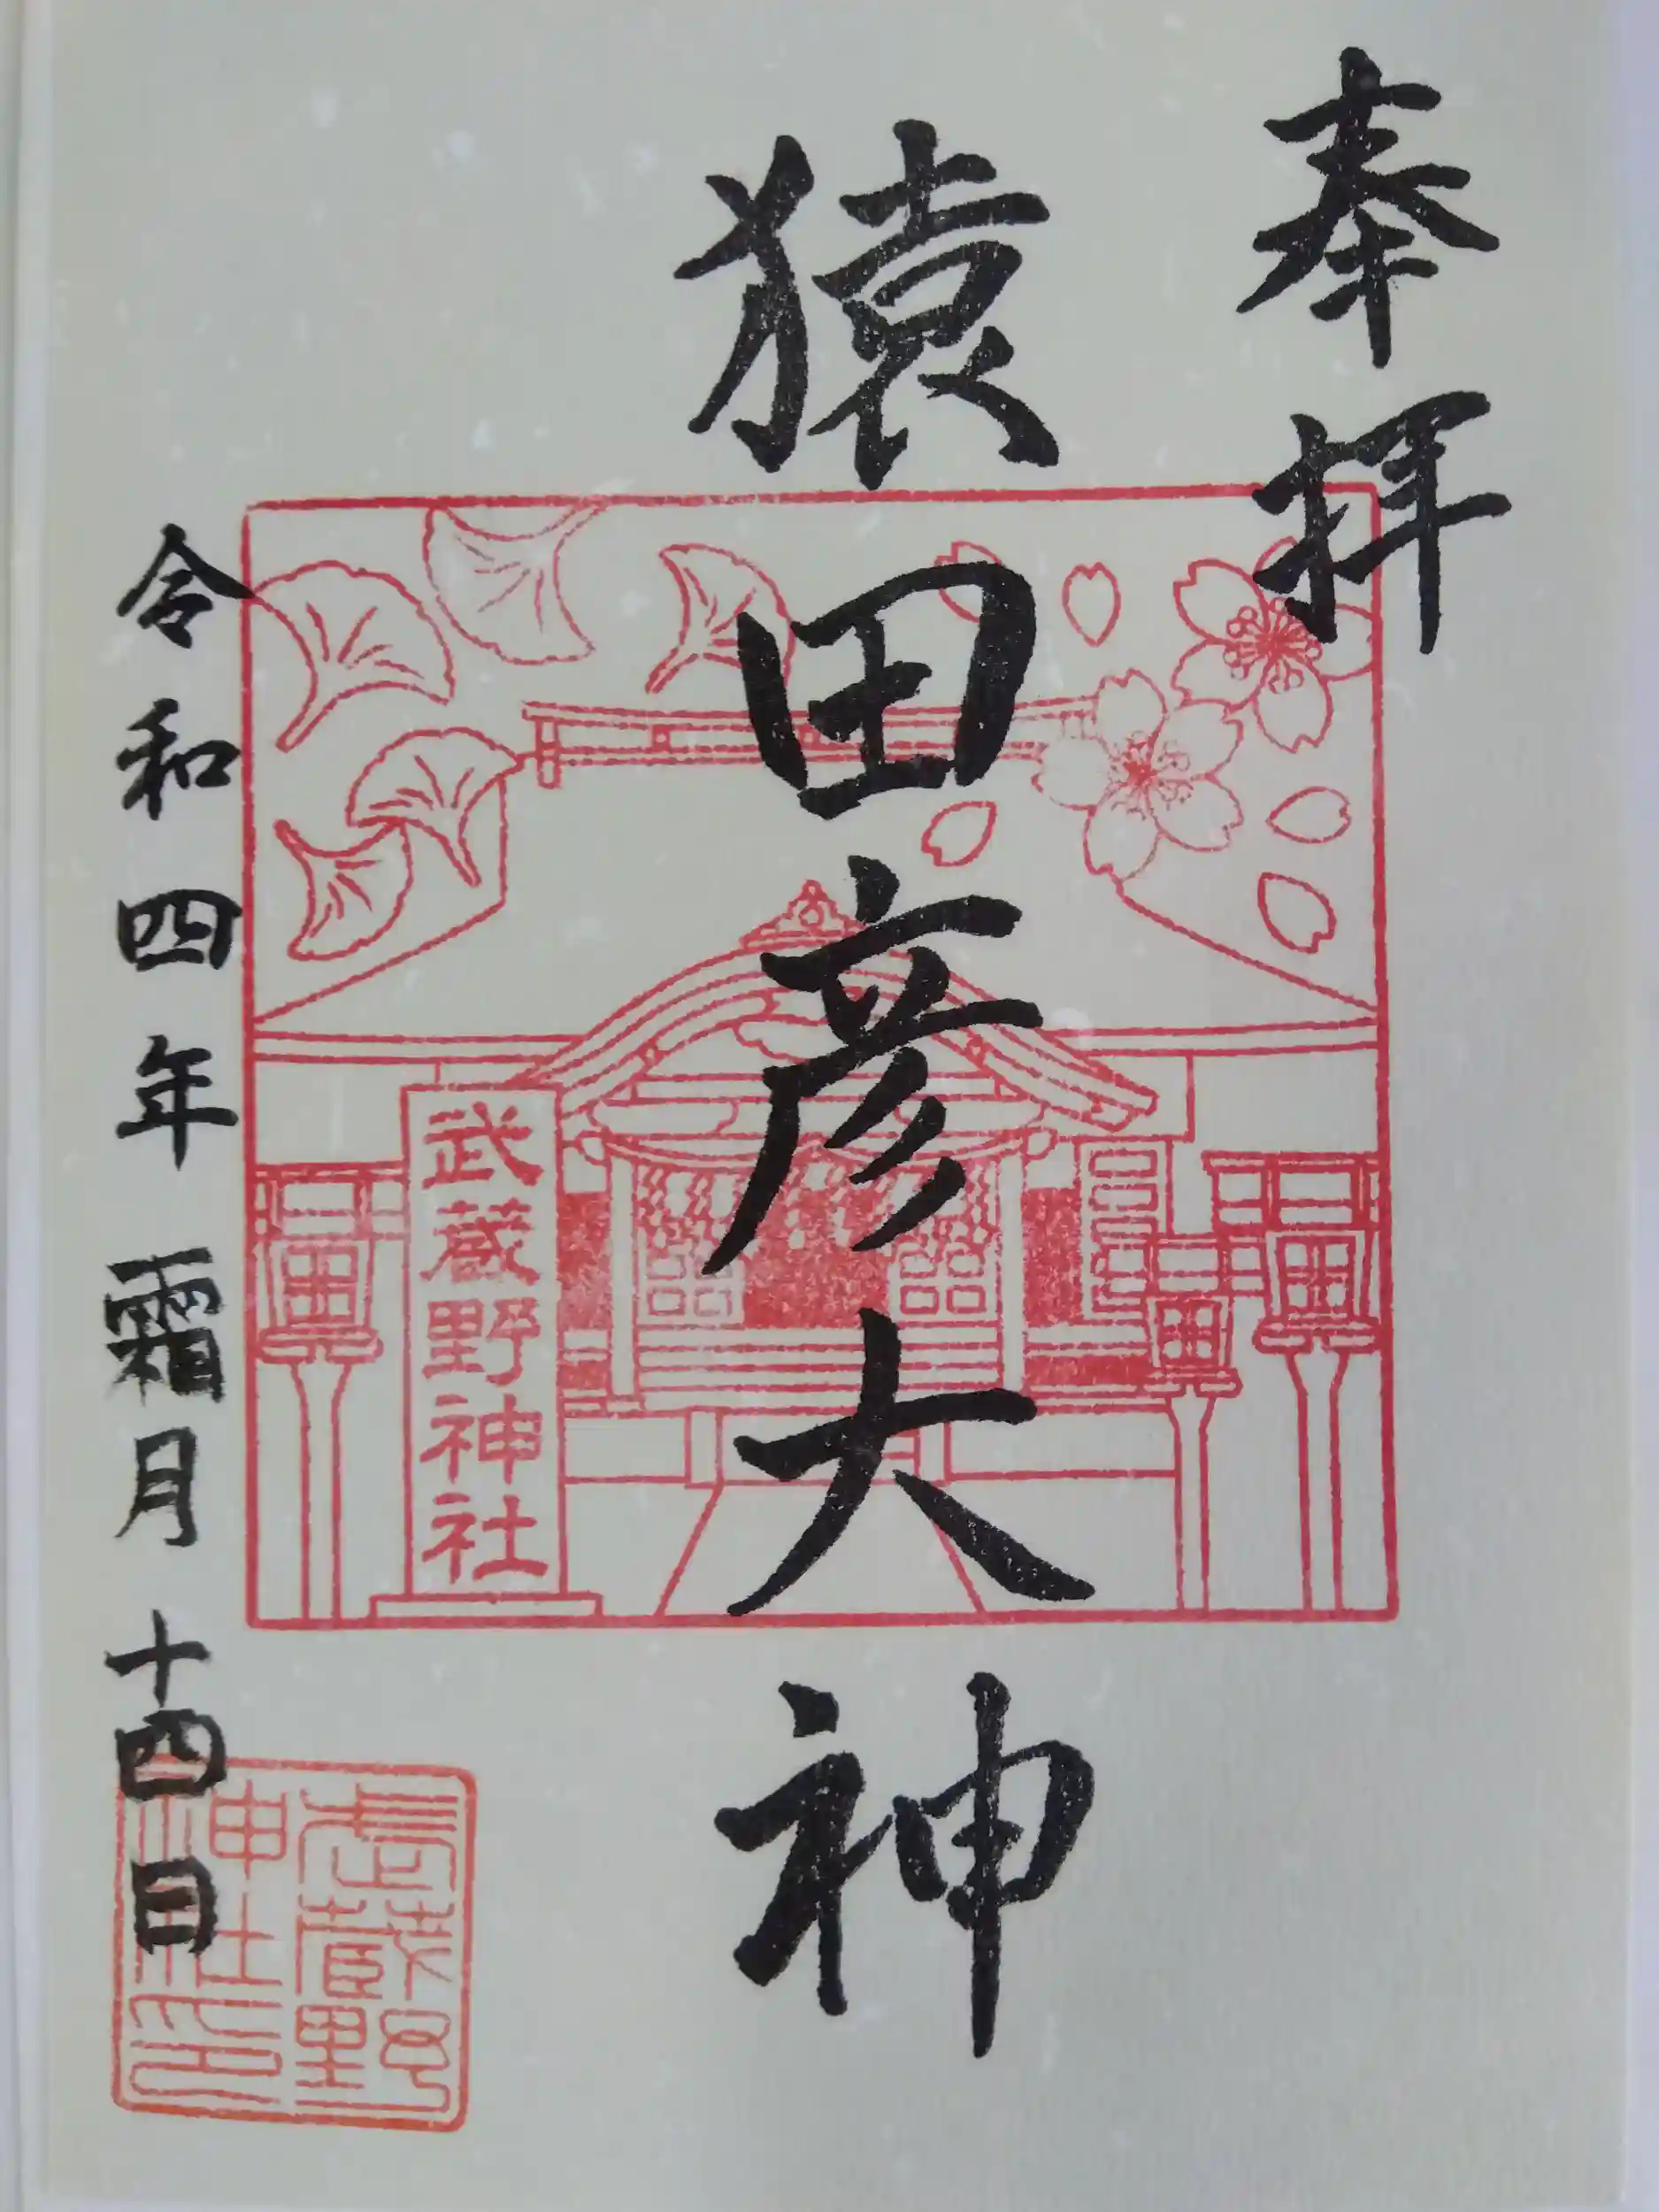 奉拝
猿田彦大神
武蔵野神社
令和四年 霜月 十四日
武蔵野
神社印